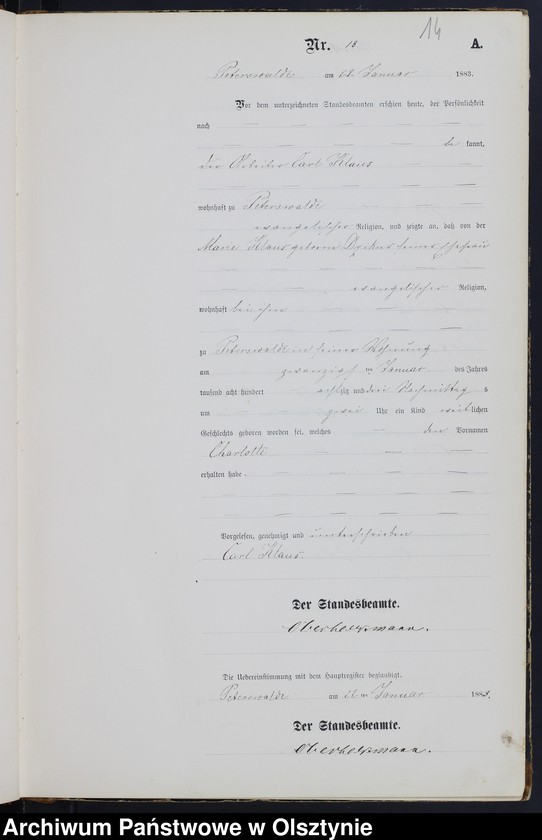 14
Nr. 13. A.
Peterswalde am 22. Januar 1883.
Vor dem unterzeichneten Standesbeamten erschien heute, der Persönlichkeit
nach
be kannt,
der Arbeiter Carl Klaus
wohnhaft zu Peterswalde
evangelischer Religion, und zeigte an, daß von der
Marie Klaus geborene seiner Ehefrau
evangelischer Religion,
wohnhaft bei ihm
zu Peterswalde in seiner Wohnung
am zwanzigsten Januar des Jahres
tausend acht hundert achtzig und drei Nachmittags
um zwei Uhr ein Kind weiblichen
Geschlechts geboren worden sei, welches den Vornamen
Charlotte
erhalten habe.
Vorgelesen, genehmigt und unterschrieben
Carl Klaus.
Der Standesbeamte.
Die Uebereinstimmung mit dem Hauptregister beglaubigt.
Peterswalde am 22ten Januar 1883.
Der Standesbeamte.
Archiwum Państwowe w Olsztynie